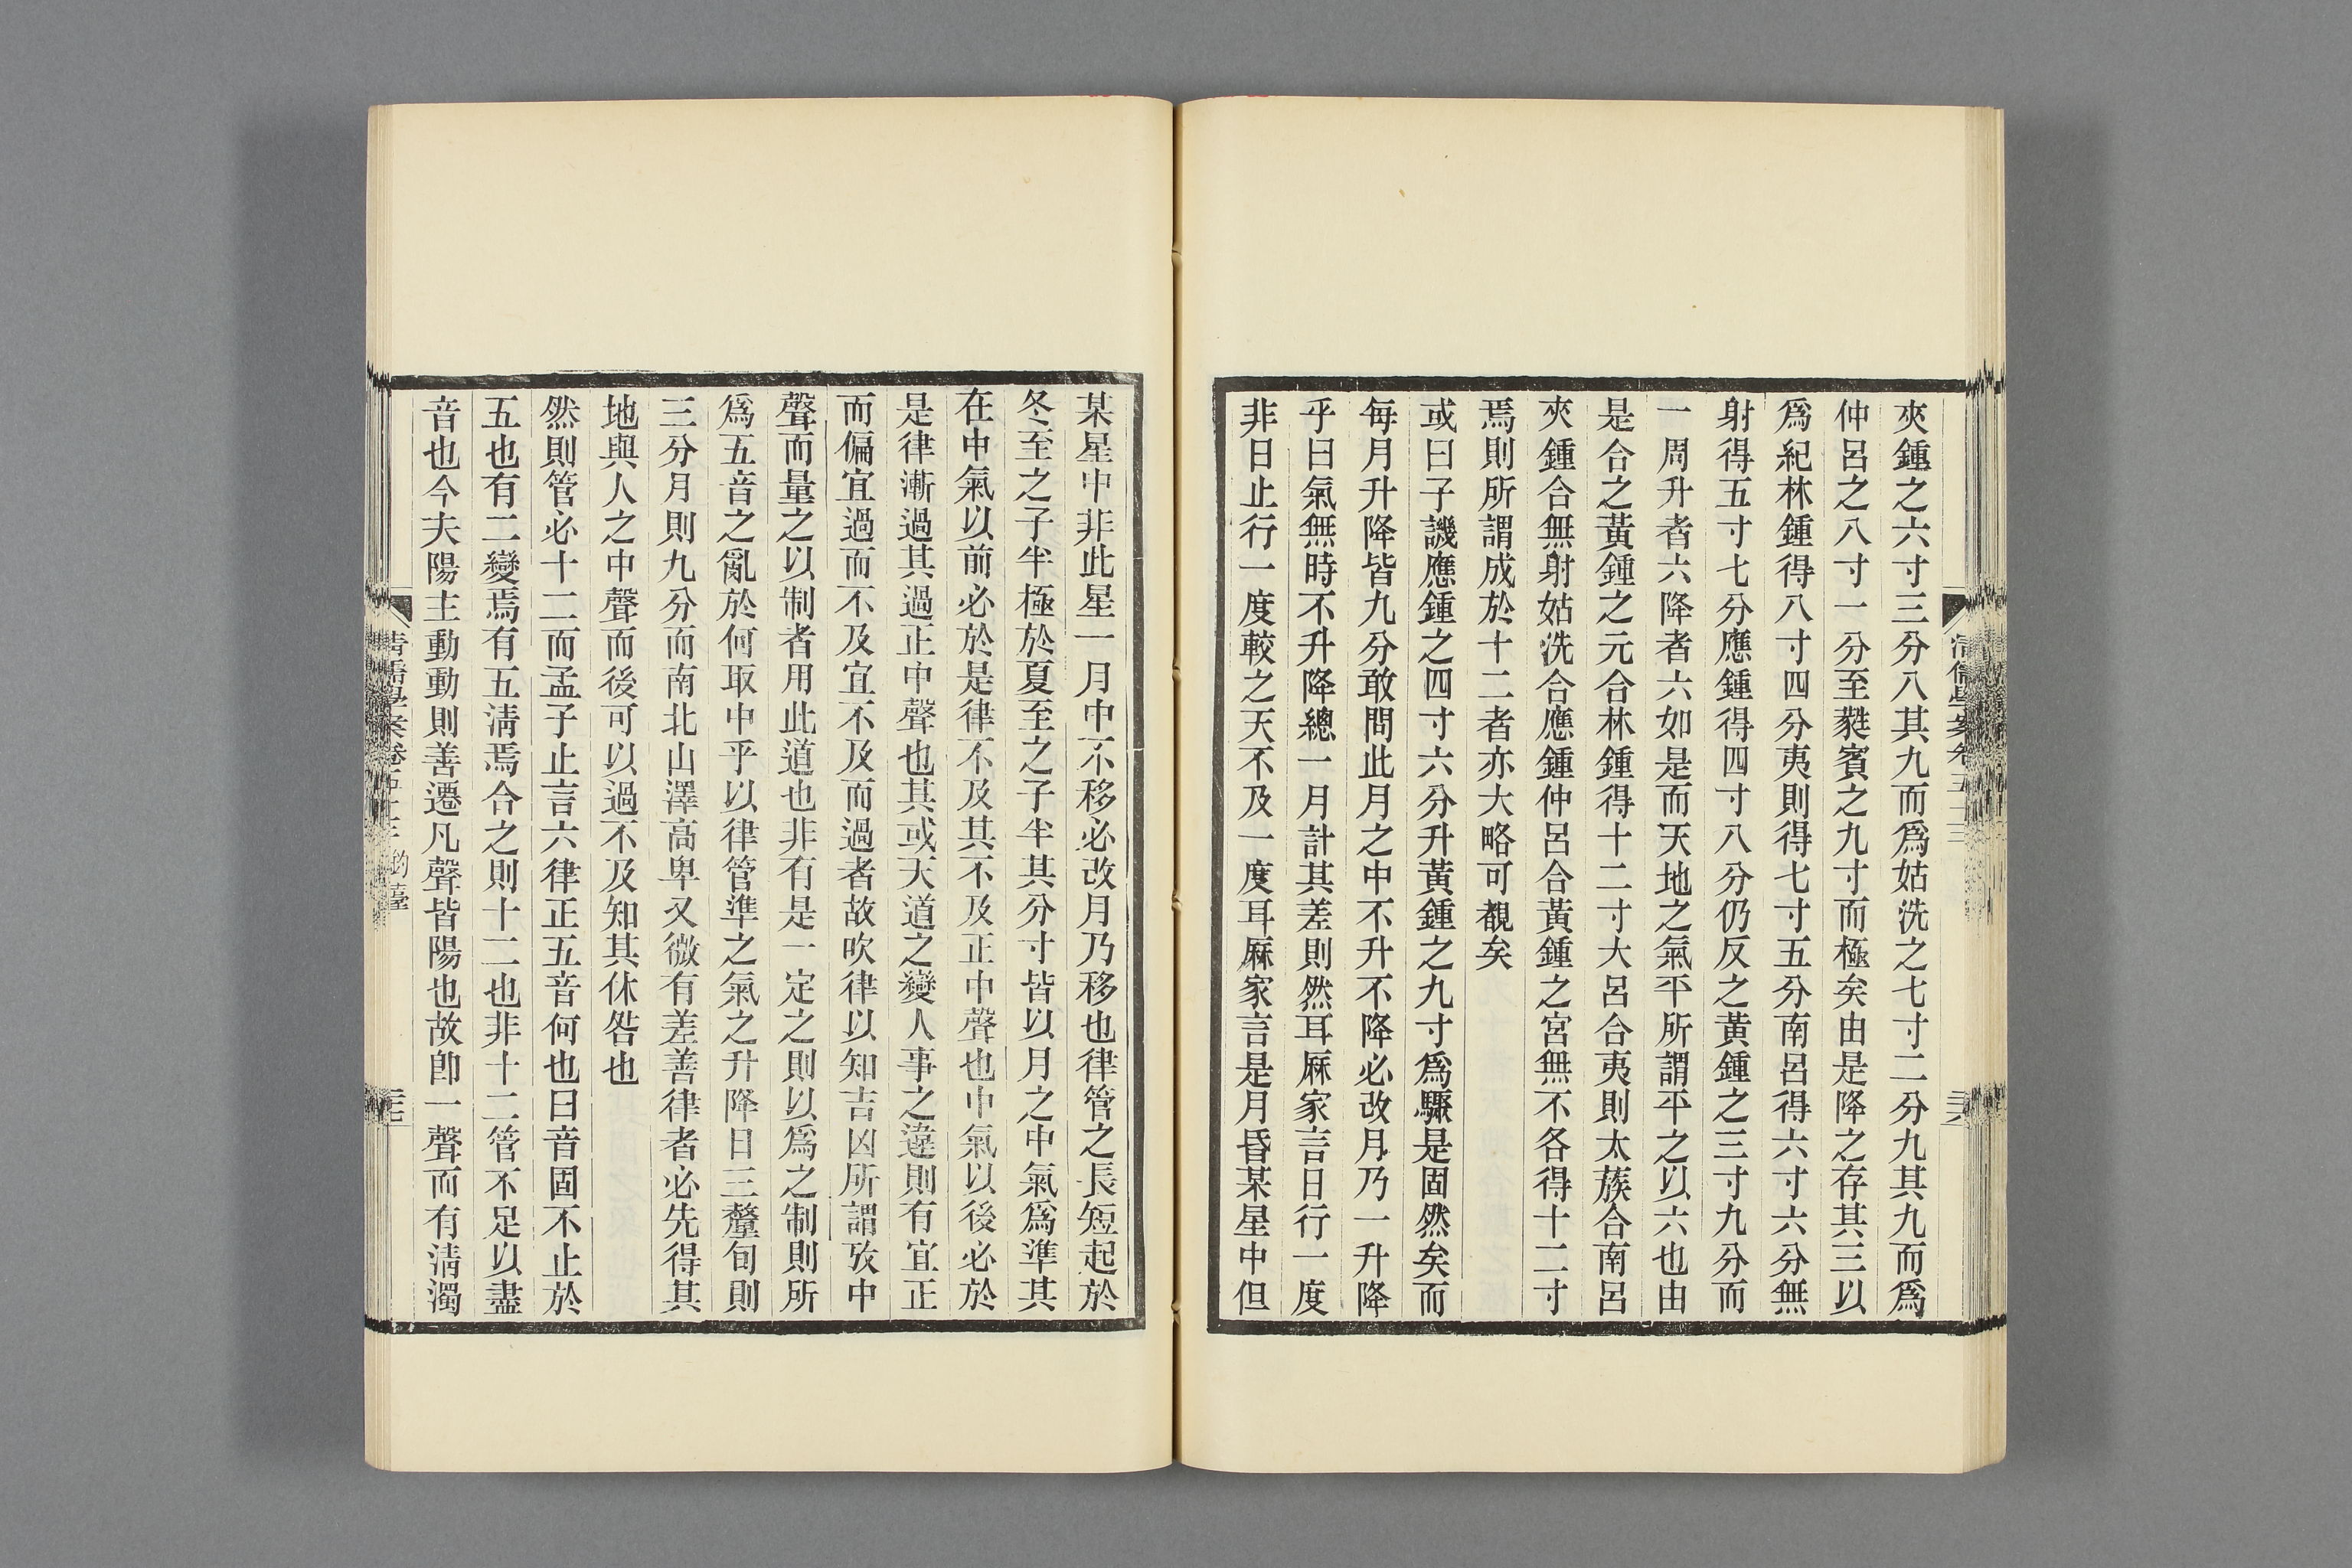 夾鍾之六寸三分八其九而爲姑洗之七寸二分九其九而爲
仲呂之八寸一分至蕤賓之九寸而極矣由是降之存其三以
爲紀林鍾得八寸四分夷則得七寸五分南呂得六寸六分無
射得五寸七分應鍾得四寸八分仍反之黃鍾之三寸九分而
一周升者六降者六如是而天地之氣平所謂平之以六也由
是合之黃鍾之元合林鍾得十二寸大呂合夷則太蔟合南呂
夾鍾合無射姑洗合應鍾仲呂合黃鍾之宮無不各得十二寸
焉則所謂成於十二者亦大略可覩矣
或曰子譏應鍾之四寸六分升黃鍾之九寸爲驟是固然矣而
每月升降皆九分敢問此月之中不升不降必改月乃一升降
乎曰氣無時不升降總一月計其差則然耳厤家言日行一度
非日止行一度較之天不及一度耳厤家言是月昏某星中但
清儒學案卷五十三
三六
某星中非此星一月中不移必改月乃移也律管之長短起於
冬至之子半極於夏至之子半其分寸皆以月之中氣爲準其
在中氣以前必於是律不及其不及正中聲也中氣以後必於
是律漸過其過正中聲也其或天道之變人事之違則有宜正
而偏宜過而不及宜不及而過者故吹律以知吉凶所謂攷中
聲而量之以制者用此道也非有是一定之則以爲之制則所
爲五音之亂於何取中乎以律管準之氣之升降日三釐旬則
三分月則九分而南北山澤高卑又微有差善律者必先得其
地與人之中聲而後可以過不及知其休咎也
然則管必十二而孟子止言六律正五音何也曰音固不止於
五也有二變焉有五淸焉合之則十二也非十二管不足以盡
音也今夫陽主動動則善遷凡聲皆陽也故卽一聲而有淸濁
清儒學案卷五十三 鈞臺
三七